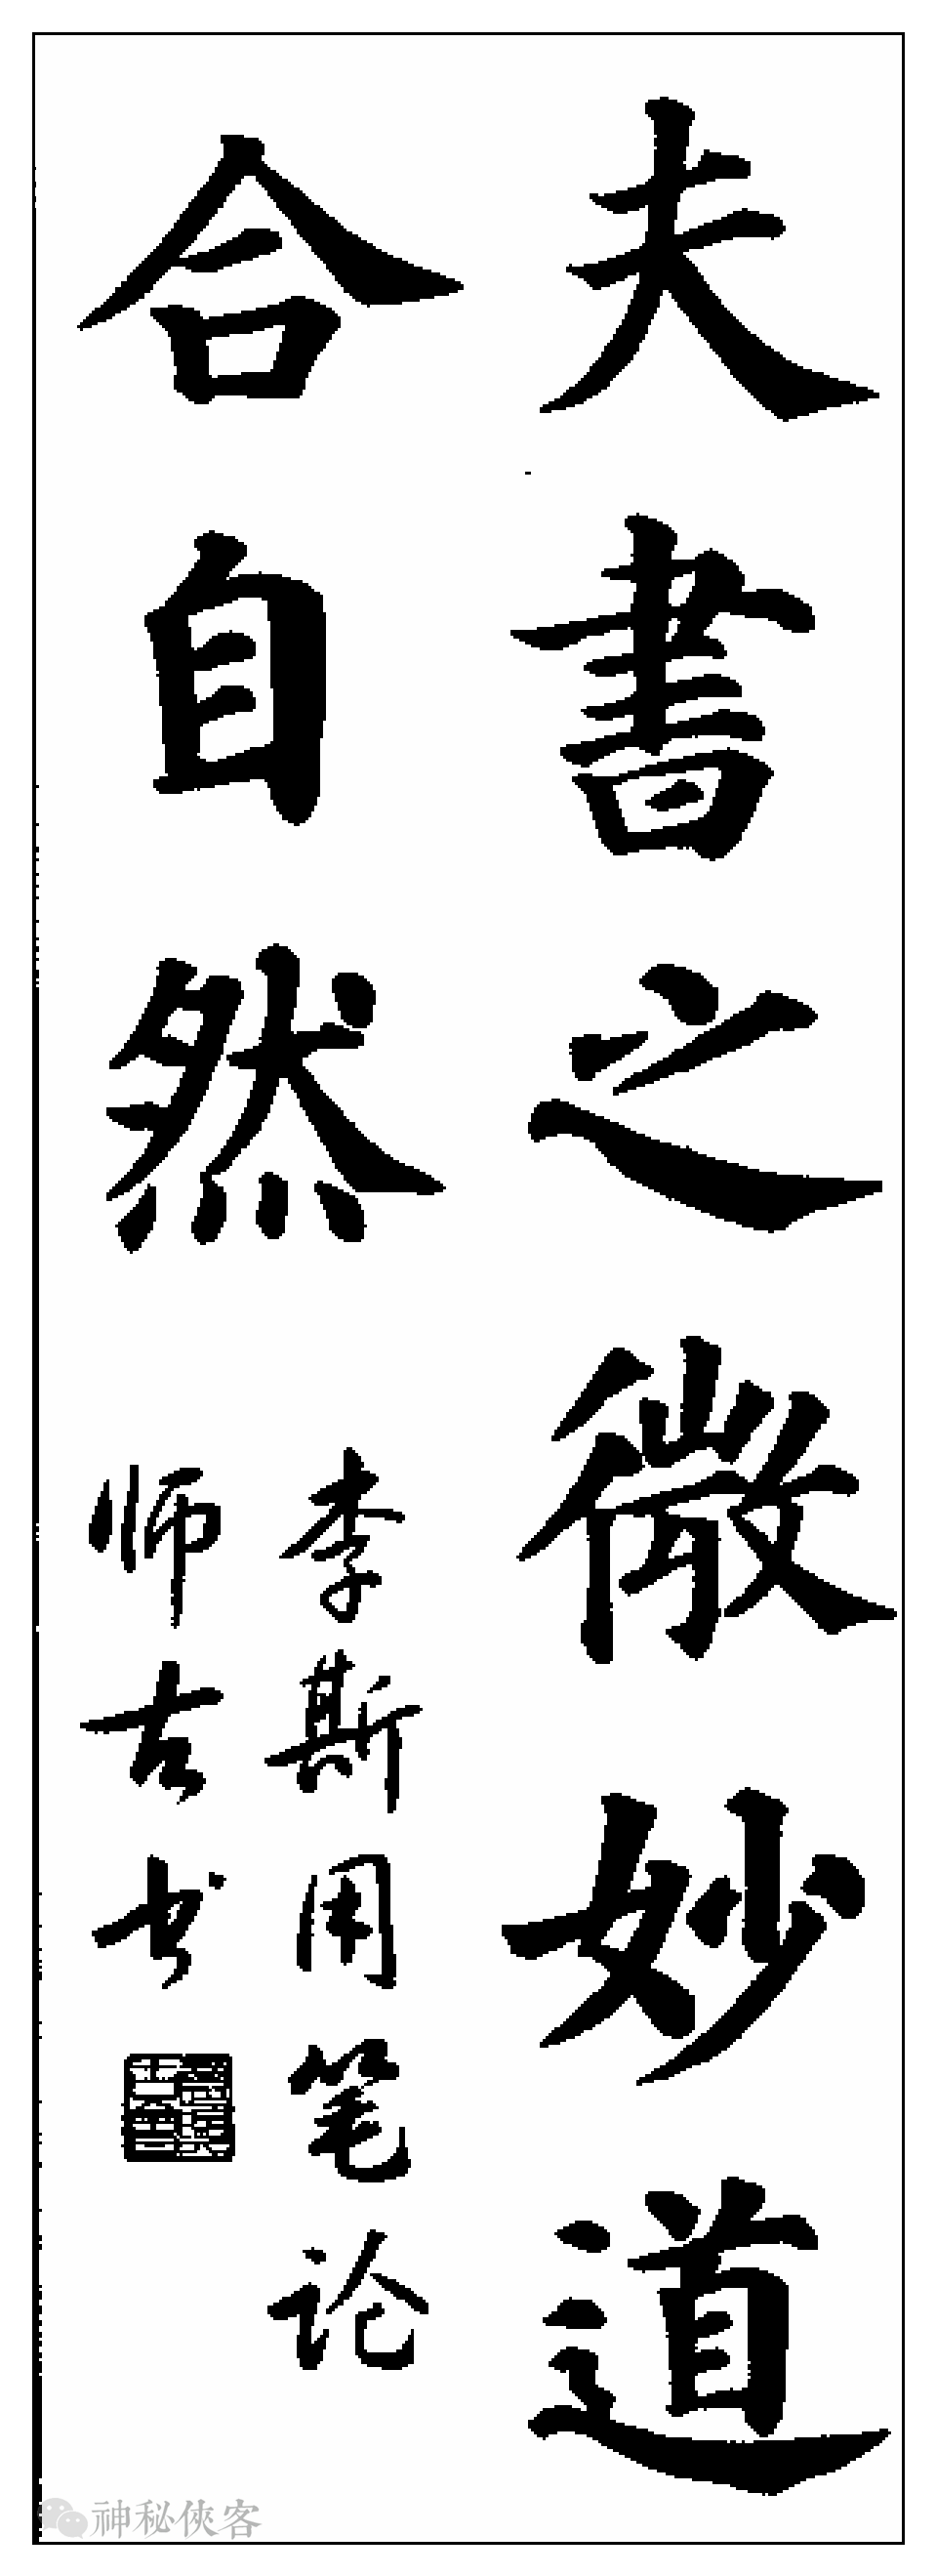 夫書之微妙道
合自然
李斯用笔论
师古书
神秘侠客